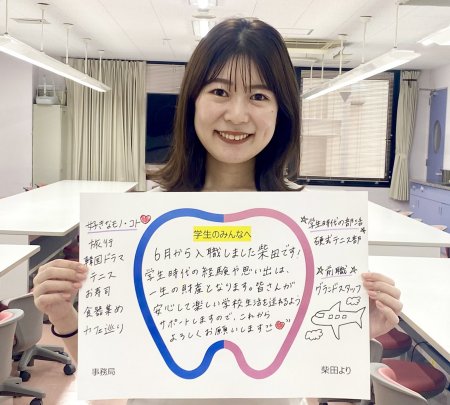 好きなモノ・コト
坂49
韓国ドラマ
テニス
お寿司
食器集め
カフェ巡り
事務局
学生のみんなへ
6月から入職しました柴田です！
学生時代の経験や思い出は、
一生の財産となります。皆さんが
安心して楽しい学校生活を送れるよう
サポートしますので、これから
よろしくお願いします
☆学生時代の部活☆
硬式テニス部
☆前職☆
グランドスタッフ
柴田より